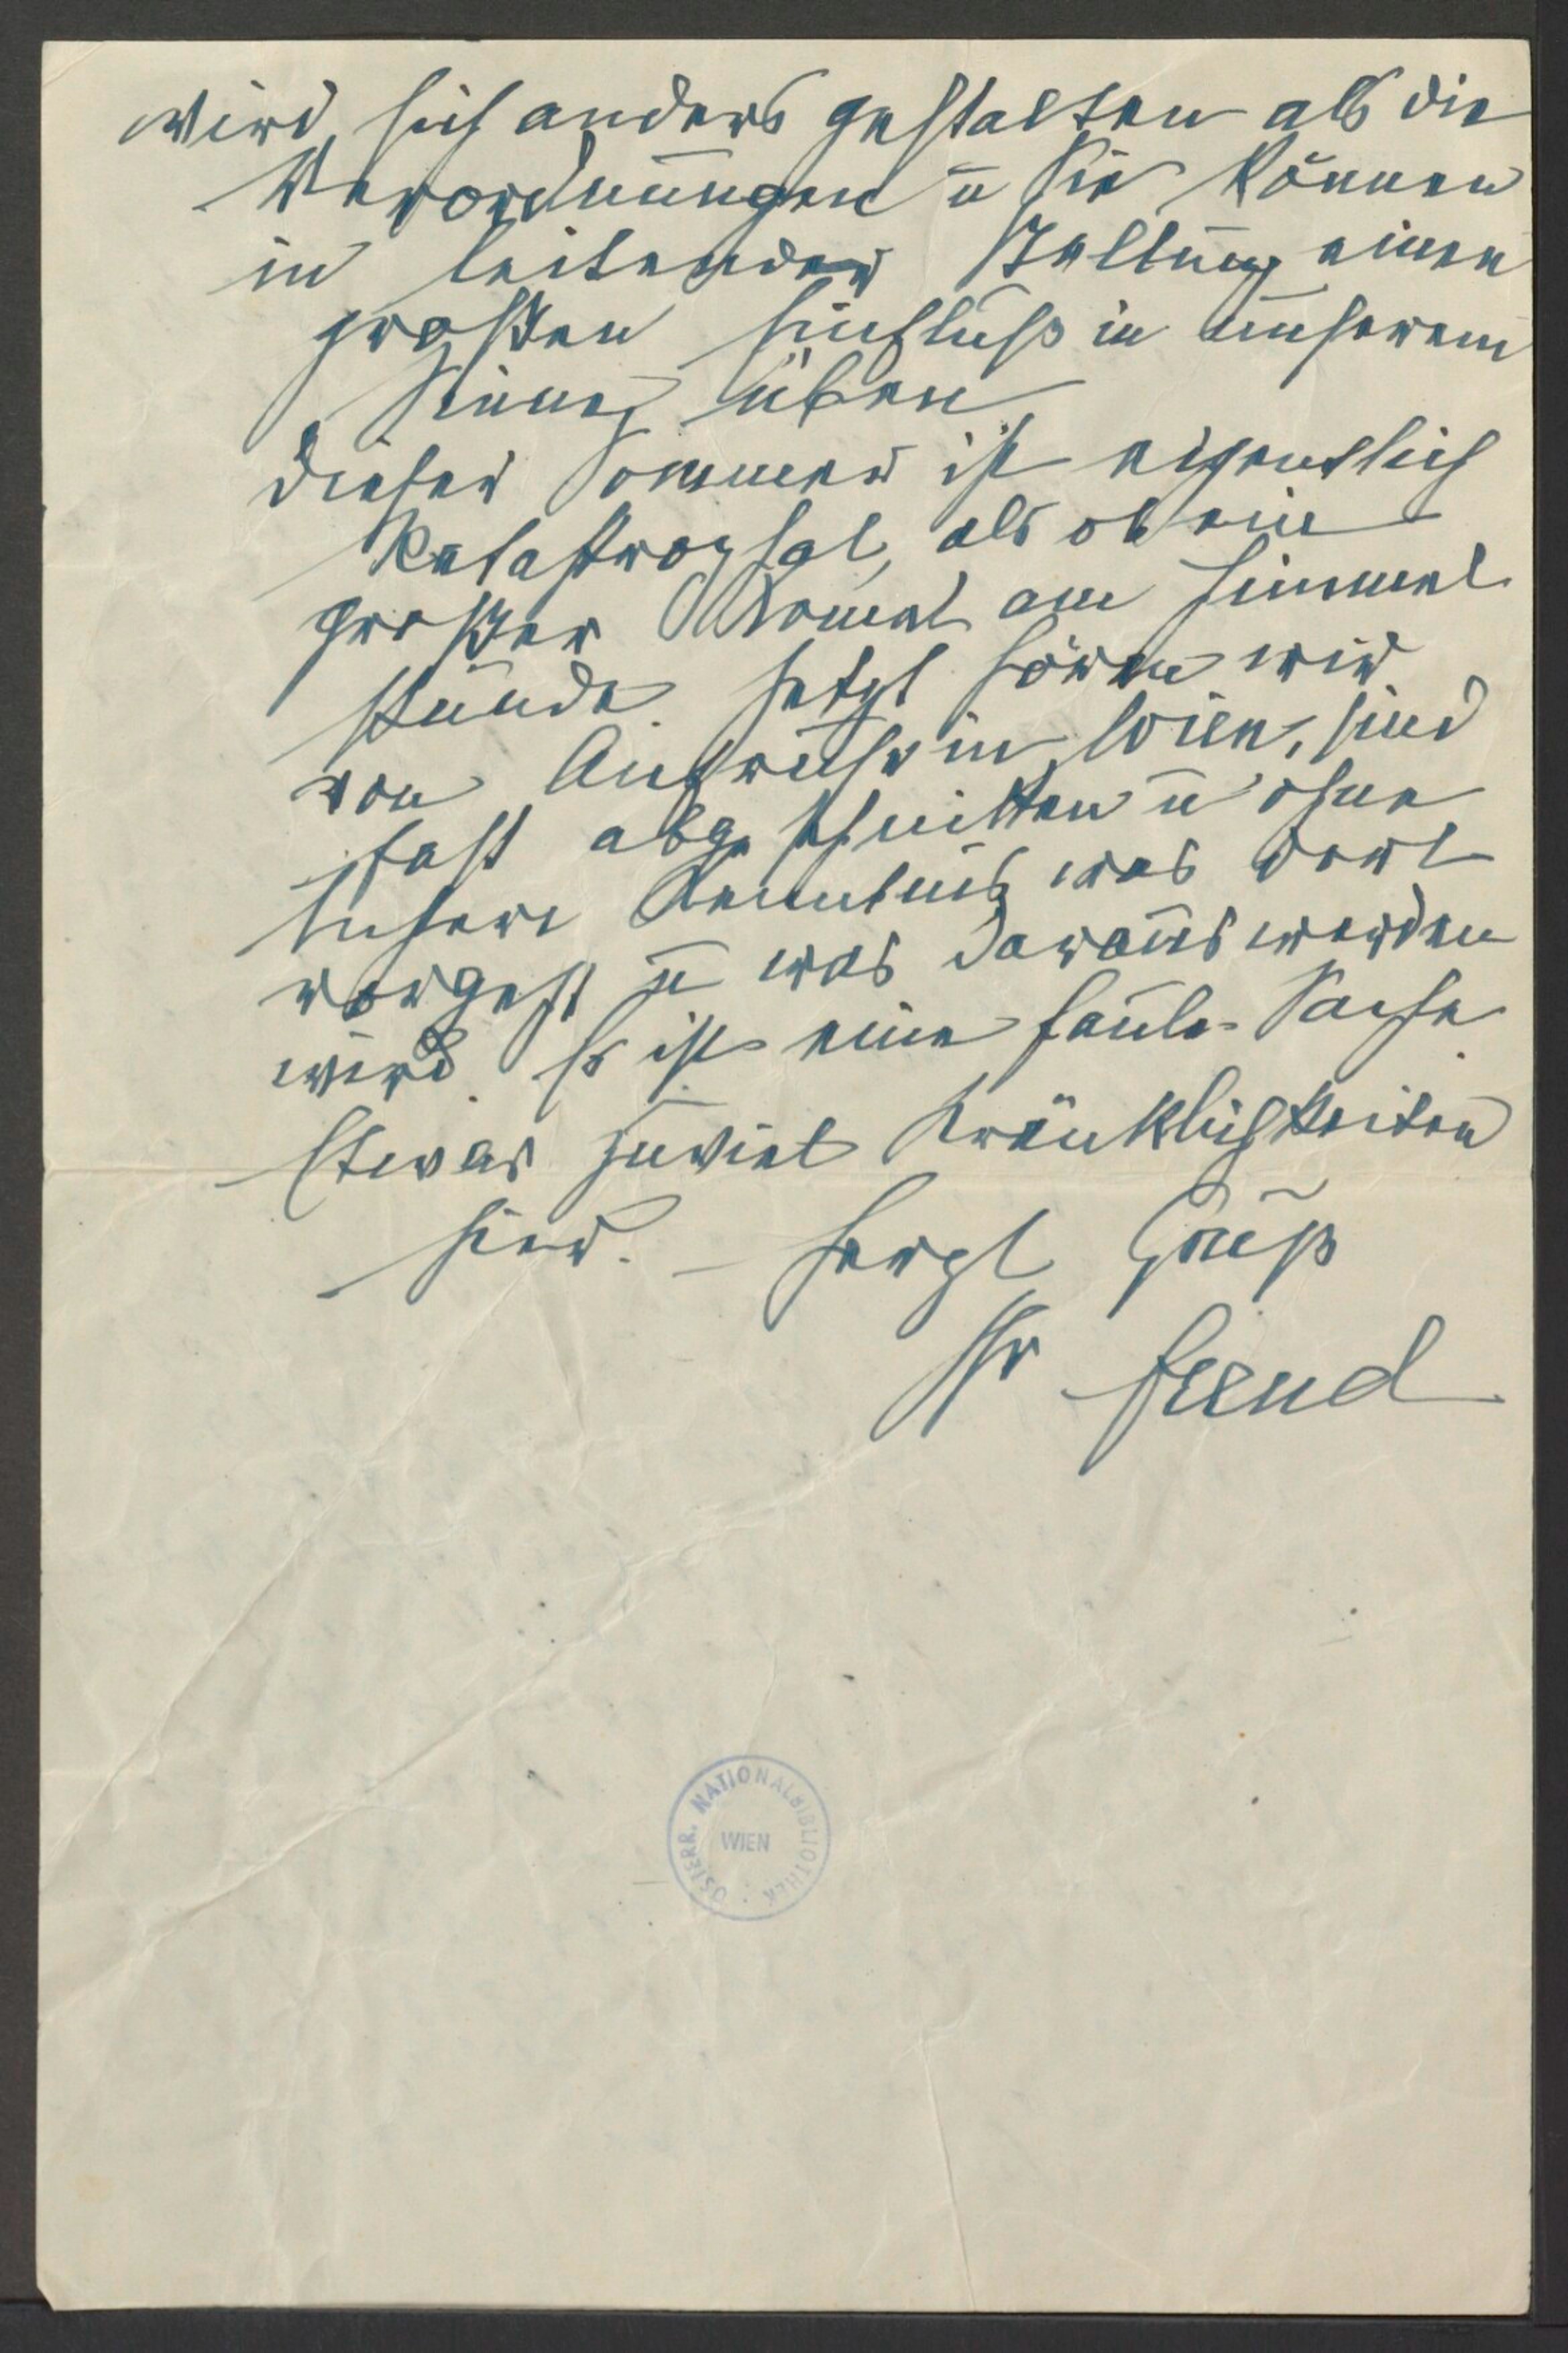 wird sich anders gestalten als die
Verordnungen u Sie können
in leitender Stellung einen
großen Einfluß in unserem
Sinne üben
Dieser Sommer ist eigentlich
katastrophal, als ob ein
großer Komet am Himmel
stünde. Jetzt hören wir
von Aufruhr in Wien, sind
fast abgeschnitten u ohne
nähere Kenntnis was dort
vorgeht u was daraus werden
wird. Es ist eine faule Sache
Etwas zuviel Kränklichkeiten
hier. – Herzl Gruß
Ihr Freud
ÖSTERR. NATIONALBIBLIOTHEK
WIEN